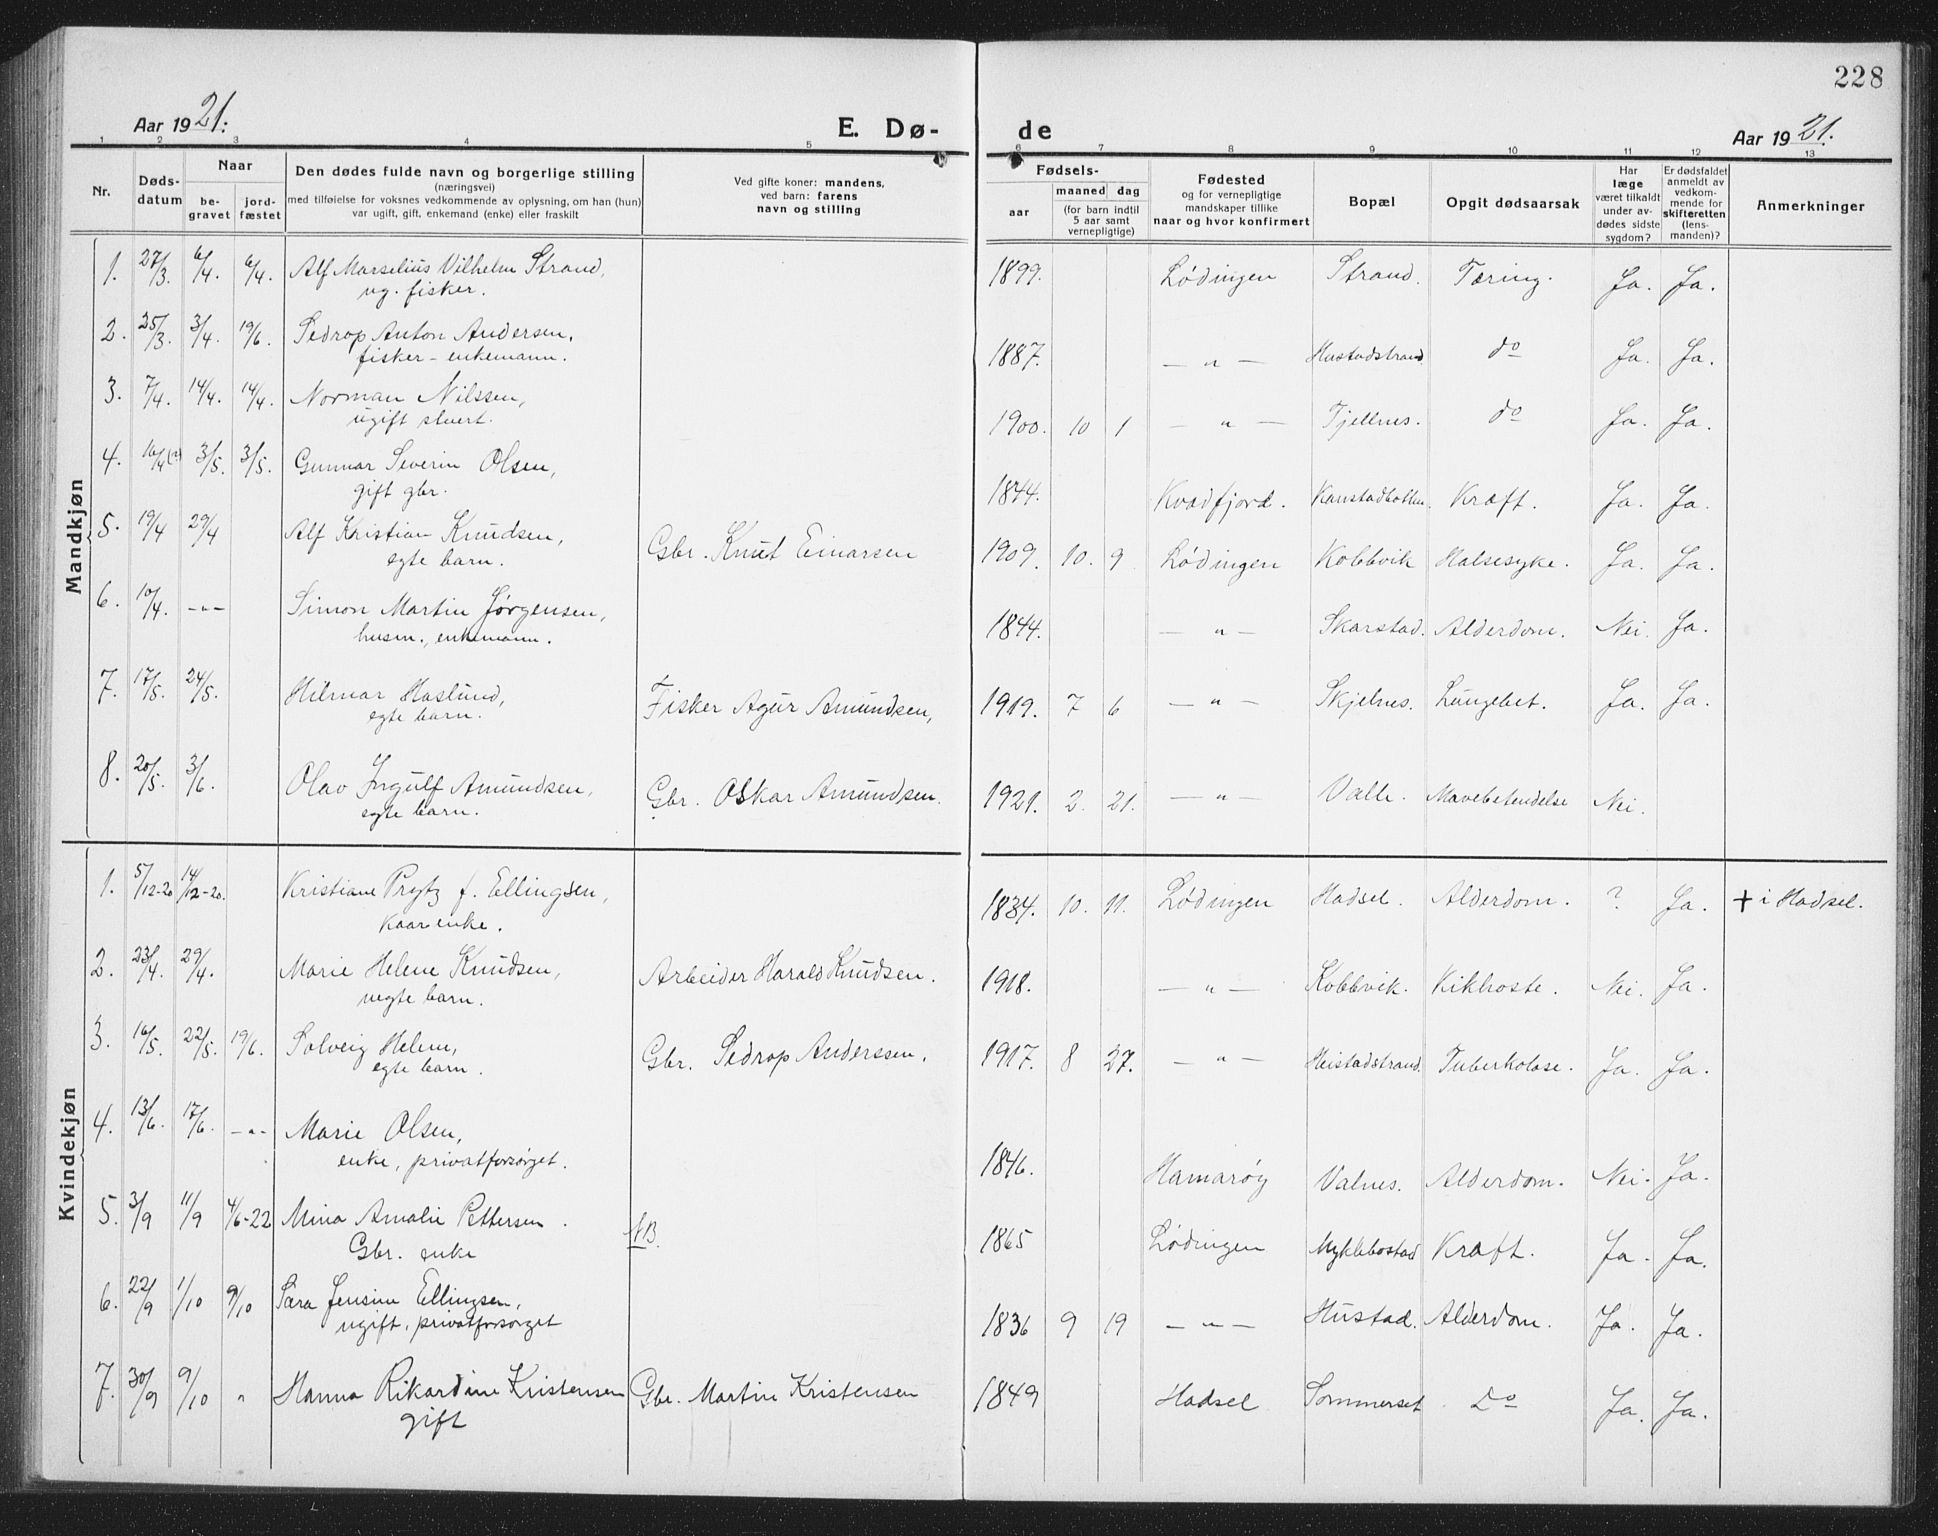 228
Aar 1921. E. Dø- de Aar 1921.
1 2 3 4 5 6 7 8 9 10 11 12 13
Nr. Døds-datum Naar be-gravet jord-fæstet Den dødes fulde navn og borgerlige stilling (næringsvei) med tilføielse for voksnes vedkommende av oplysning, om han (hun) var ugift, gift, enkemand (enke) eller fraskilt Ved gifte koner: mandens, ved barn: farens navn og stilling Fødsels- aar maaned dag (for barn indtil 5 aar samt vernepligtige) Fødested og for vernepligtige mandskaper tillike naar og hvor konfirmert Bopæl Opgit dødsaarsak Har læge været tilkaldt under av-dødes sidste sygdom? Er dødsfaldet anmeldt av vedkom-mende for skifteretten (lens-manden)? Anmerkninger
Mandkjøn
1. 27/3. 6/4. 6/4. Alf Marselius Vilhelm Strand, 1899. Lødingen Strand. Tæring. Ja. Ja.
ug. fisker.
2. 25/3. 3/4. 19/6. Sedrop Anton Andersen, 1887. — " — Hustadstrand do Ja. Ja.
fisker – enkemann.
3. 7/4. 14/4. 14/4. Norman Nilssen, 1900. 10 1 — " — Fjellnes. do Ja. Ja.
ugift stuert.
4. 16/4 (?) 3/5. 3/5. Gunnar Severin Olsen, 1844. Kvadfjord. Kanstadbotten Kræft. Ja. Ja.
gift gbr.
5. 19/4 29/4 Alf Kristian Knudsen, Gbr. Knut Einarsen 1909. 10. 9 Lødingen Kobbvik Halsesyke. Ja. Ja.
egte barn.
6. 10/4. -"- Simon Martin Jørgensen, 1844. — " — Skarstad. Alderdom. Nei. Ja.
husm., enkemann.
7. 17/5. 24/5. Hilmar Haslund, Fisker Agur Amundsen, 1919. 7 6 — " — Skjelnes. Lungebet. Ja. Ja.
egte barn.
8. 20/5. 3/6. Olav Ingulf Amundsen, Gbr. Oskar Amundsen. 1921. 2. 21. — " — Valle. Mavebetendelse Nei.
egte barn.
Kvindekjøn
1. 5/12-20 14/12-20. Kristiane Prytz f. Ellingsen, 1834. 10. 11. Lødingen Hadsel. Alderdom. ? Ja. + i Hadsel.
kaarenke.
2. 23/4. 29/4. Marie Helene Knudsen, Arbeider Harald Knudsen. 1918. — " — Kobbvik. Kikhoste. Nei. Ja.
uegte barn.
3. 16/5. 22/5. 19/6. Solveig Helene, Gbr. Sedrop Anderssen. 1917. 8 27. — " — Heistadstrand. Tuberkolose. Ja. Ja.
egte barn.
4. 13/6. 17/6. -"- Marie Olsen, 1846. Hamarøy Valnes. Alderdom. Nei. Ja.
enke, privatforsørget.
5. 3/9 11/9 4/6-22 Mina Amalie Pettersen. NB. 1865 Lødingen Myklebostad Kræft. Ja. Ja.
Gbr. enke
6. 22/9 1/10 9/10 Sara Jensine Ellingsen, 1836 9 19 — " — Hustad. Alderdom. Ja. Ja.
ugift, privatforsørget
7. 30/9 9/10 " Hanna Rikardine Kristensen Gbr. Martin Kristensen 1849 Hadsel Sommerset Do Ja. Ja.
gift